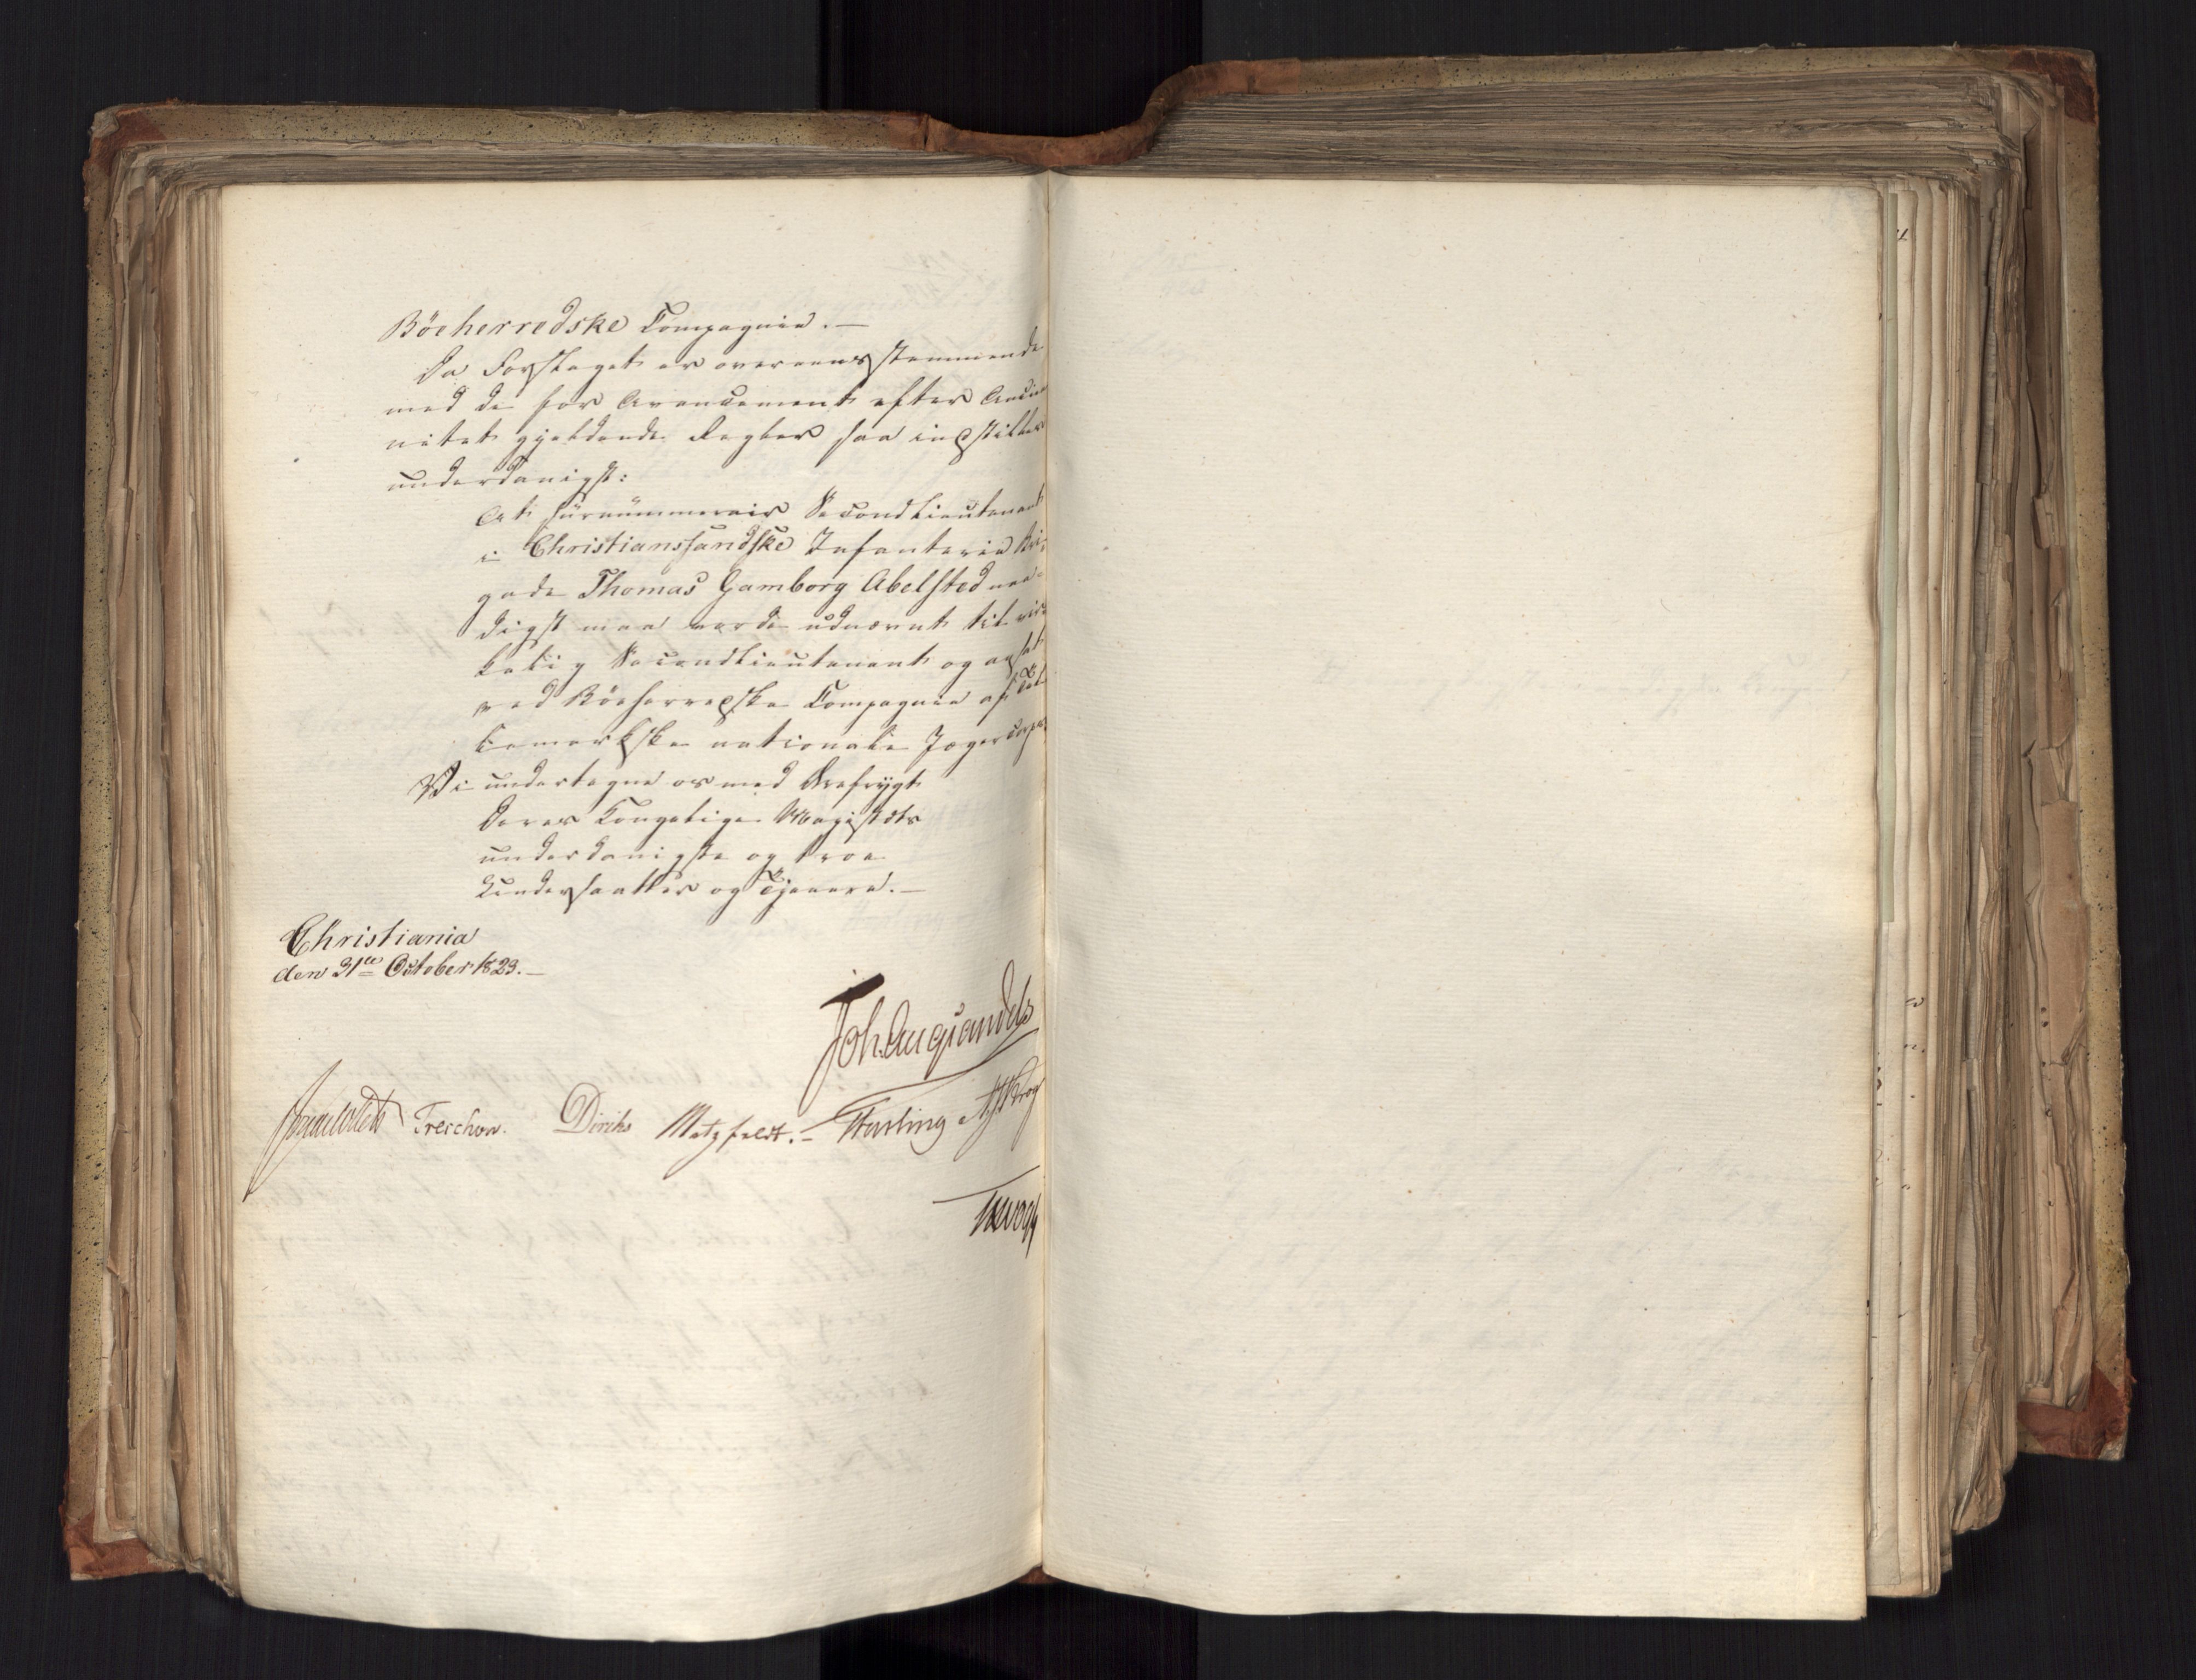 Böeherredske Compagnie.—
Da Forslaget er overeensstemmende
med de for Avancement efter Ancie
nitet gjeldende Regler saa indstilles
underdanigst:
At surnümmerair SecondLieutenant
i Christianssandske Infanterie Bri-
gade Thomas Gamborg Abelsted naa-
digst maa vorde udnævnt til vir-
kelig SecondLieutenant og ansat
ved Böeherredske Compagnie af Tel-
lemarkske nationale Jægercorps
Vi undertegne os med Ærefrygt
Deres Kongelige Majestæts
underdanigste og troe
Undersaatter og Tjenere.—
Christiania
den 31te October 1823.—
Joh. Aug Sandels
Sommerhielm Treschow. Diriks Motzfeldt.— Fasting